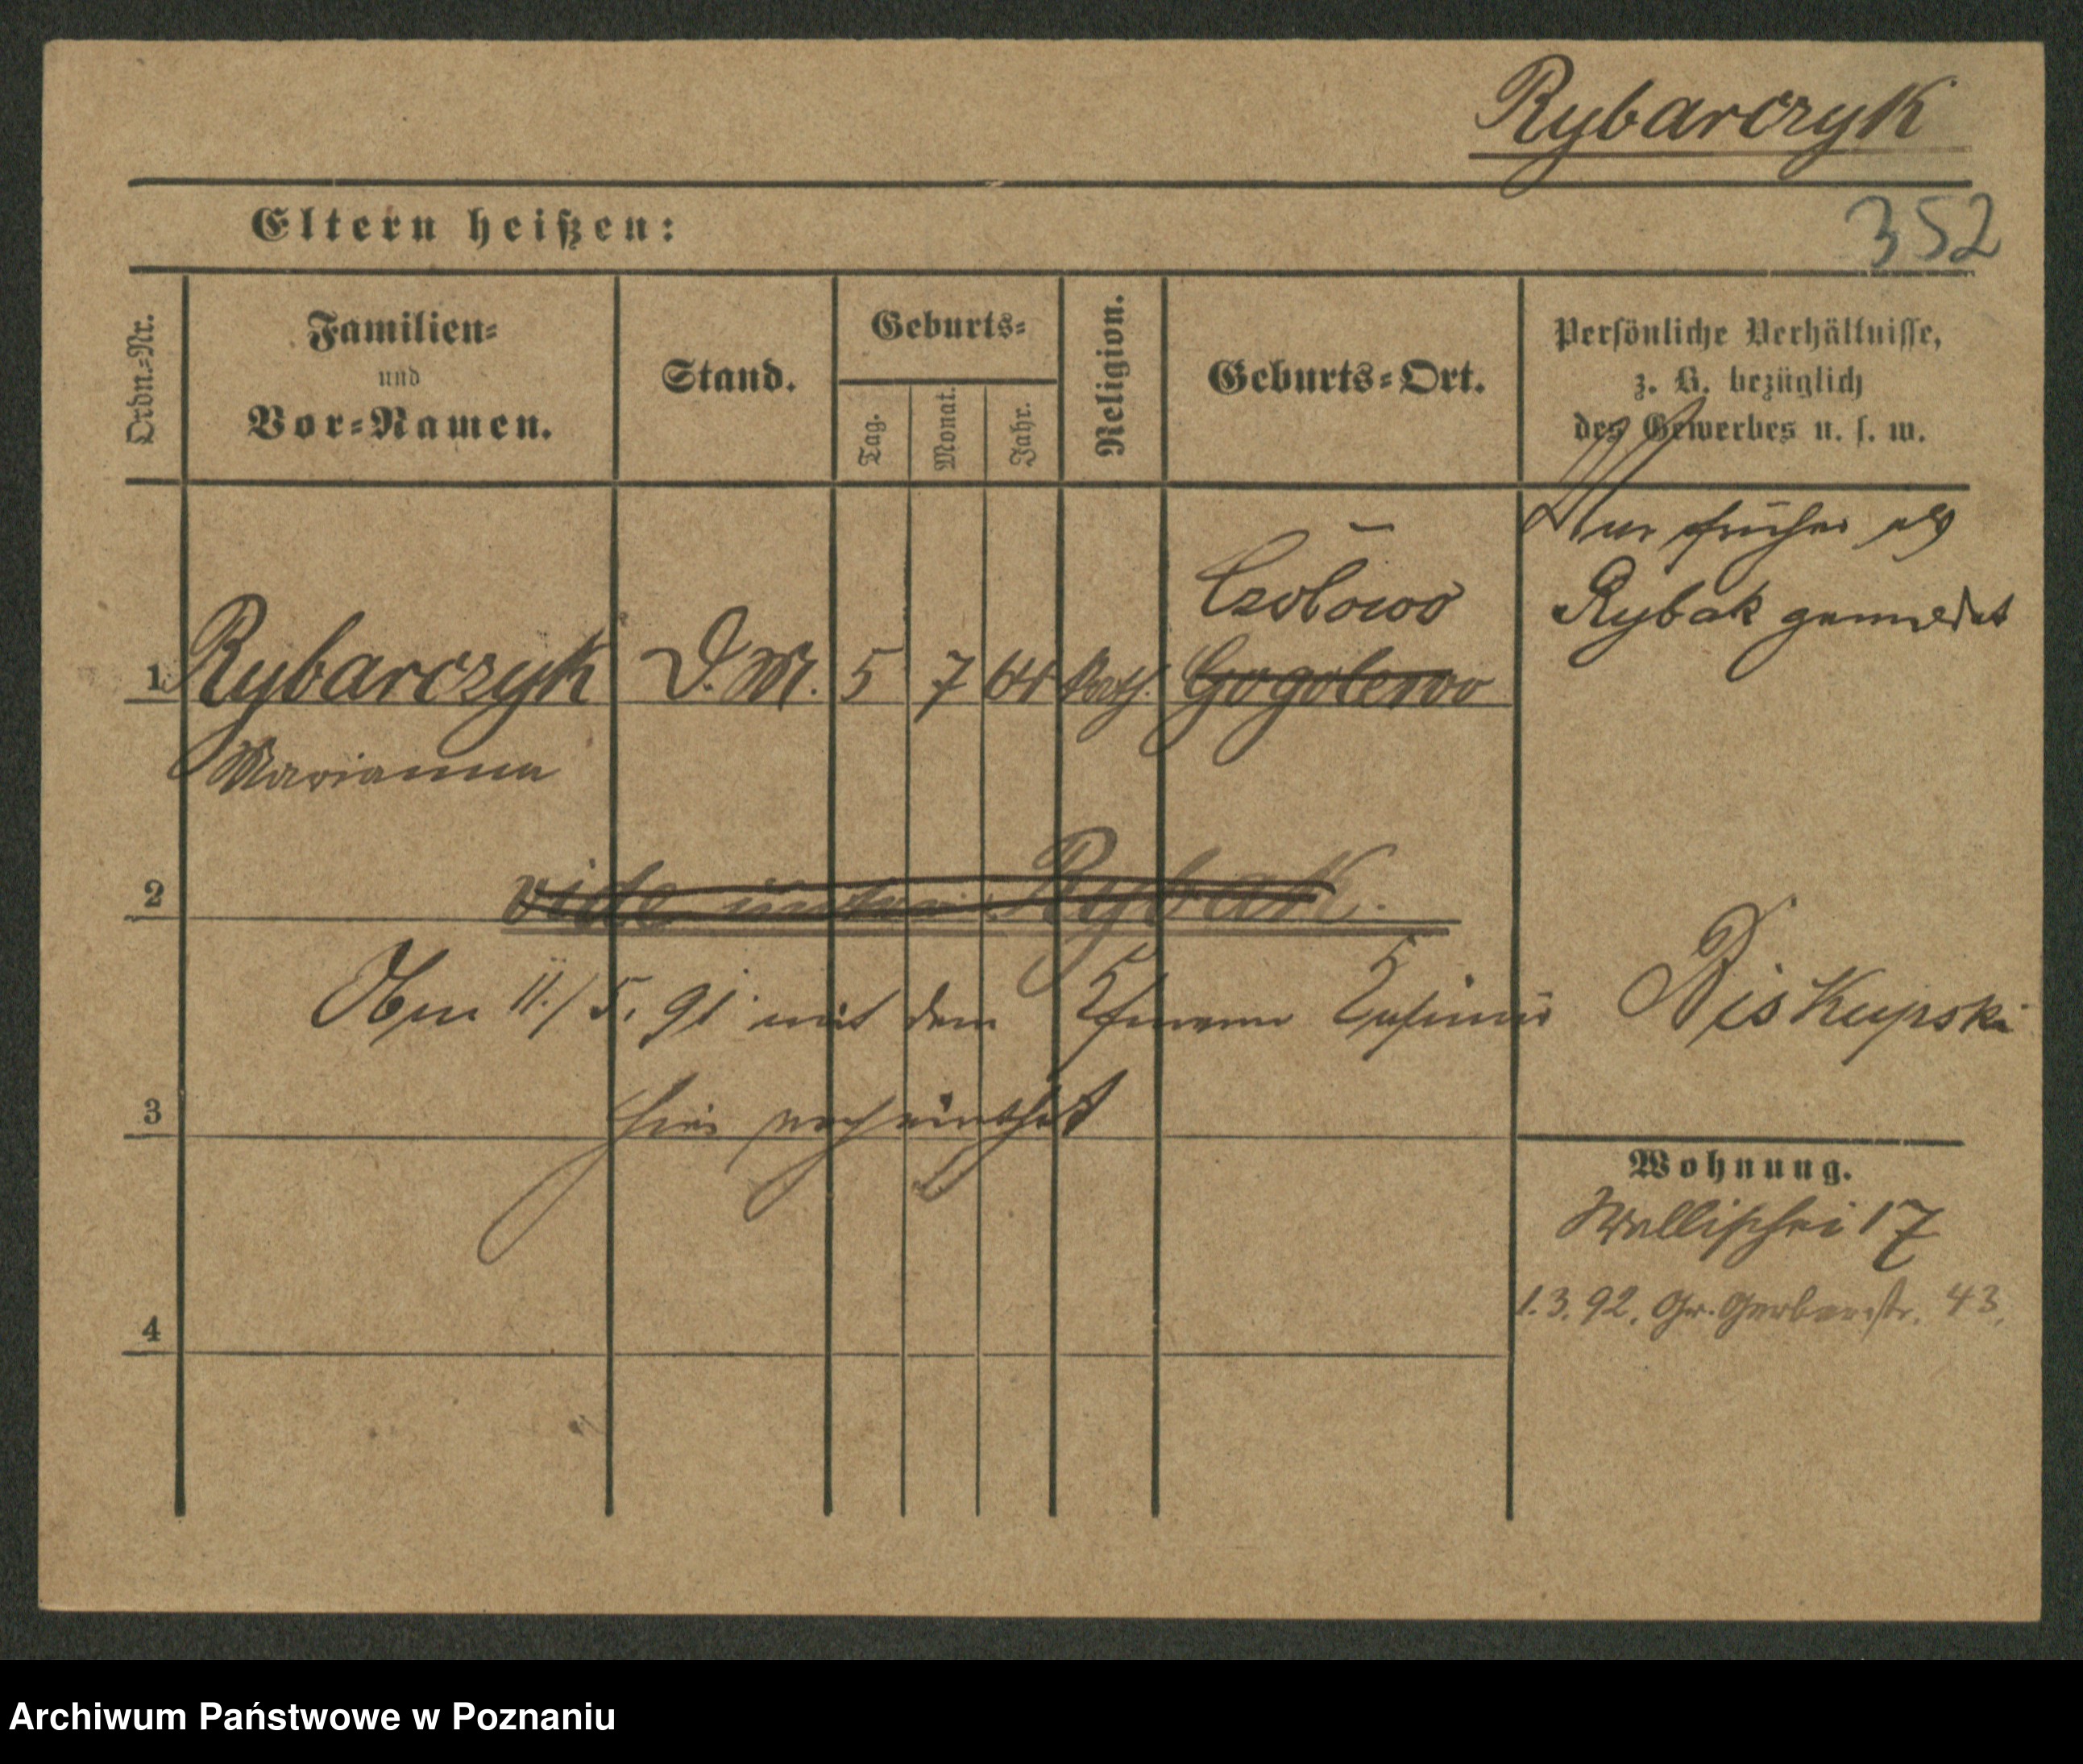 Rybarczyk
352
Eltern heißen:
Ordn.=Nr.
Familien=
und
Vor=Namen.
Stand.
Geburts=
Tag.
Monat.
Jahr.
Religion.
Geburts=Ort.
Persönliche Verhältnisse,
z. B. bezüglich
des Gewerbes u. s. w.
War früher als
Rybak gemeldet
Czołowo
1 Rybarczyk D. M. 5 7 64 Kath. Gogolewo
Marianna
2 vide unter Rybak.
Am 11./5. 91 mit dem Biskupski
3 hier verheirathet
Wohnung.
Wallischei 17
1.3.92. Gr. Gerberstr. 43.
4
Archiwum Państwowe w Poznaniu